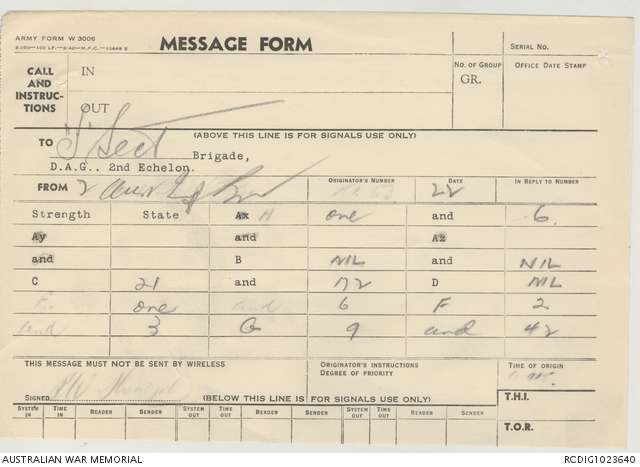 ARMY FORM W 3006
MESSAGE FORM
SERIAL NO.
CALL AND INSTRUC-TIONS
IN
OUT
NO. OF GROUP
GR.
OFFICE DATE STAMP
(ABOVE THIS LINE IS FOR SIGNALS USE ONLY)
TO
Brigade,
D.A.G., 2nd Echelon.
FROM 2 Aust
ORIGINATOR'S NUMBER
DATE
22
IN REPLY TO NUMBER
Strength State Ax H one and 6
Ay and Az
and B NIL and NIL
C 21 and 172 D NIL
E one and 6 F 2
and 3 G 9 and 42
THIS MESSAGE MUST NOT BE SENT BY WIRELESS
ORIGINATOR'S INSTRUCTIONS
DEGREE OF PRIORITY
TIME OF ORIGIN
Signed
(BELOW THIS LINE IS FOR SIGNALS USE ONLY)
T.H.I.
SYSTEM IN TIME IN READER SENDER SYSTEM OUT TIME OUT READER SENDER SYSTEM OUT TIME OUT READER SENDER
T.O.R.
AUSTRALIAN WAR MEMORIAL
RCDIG1023640